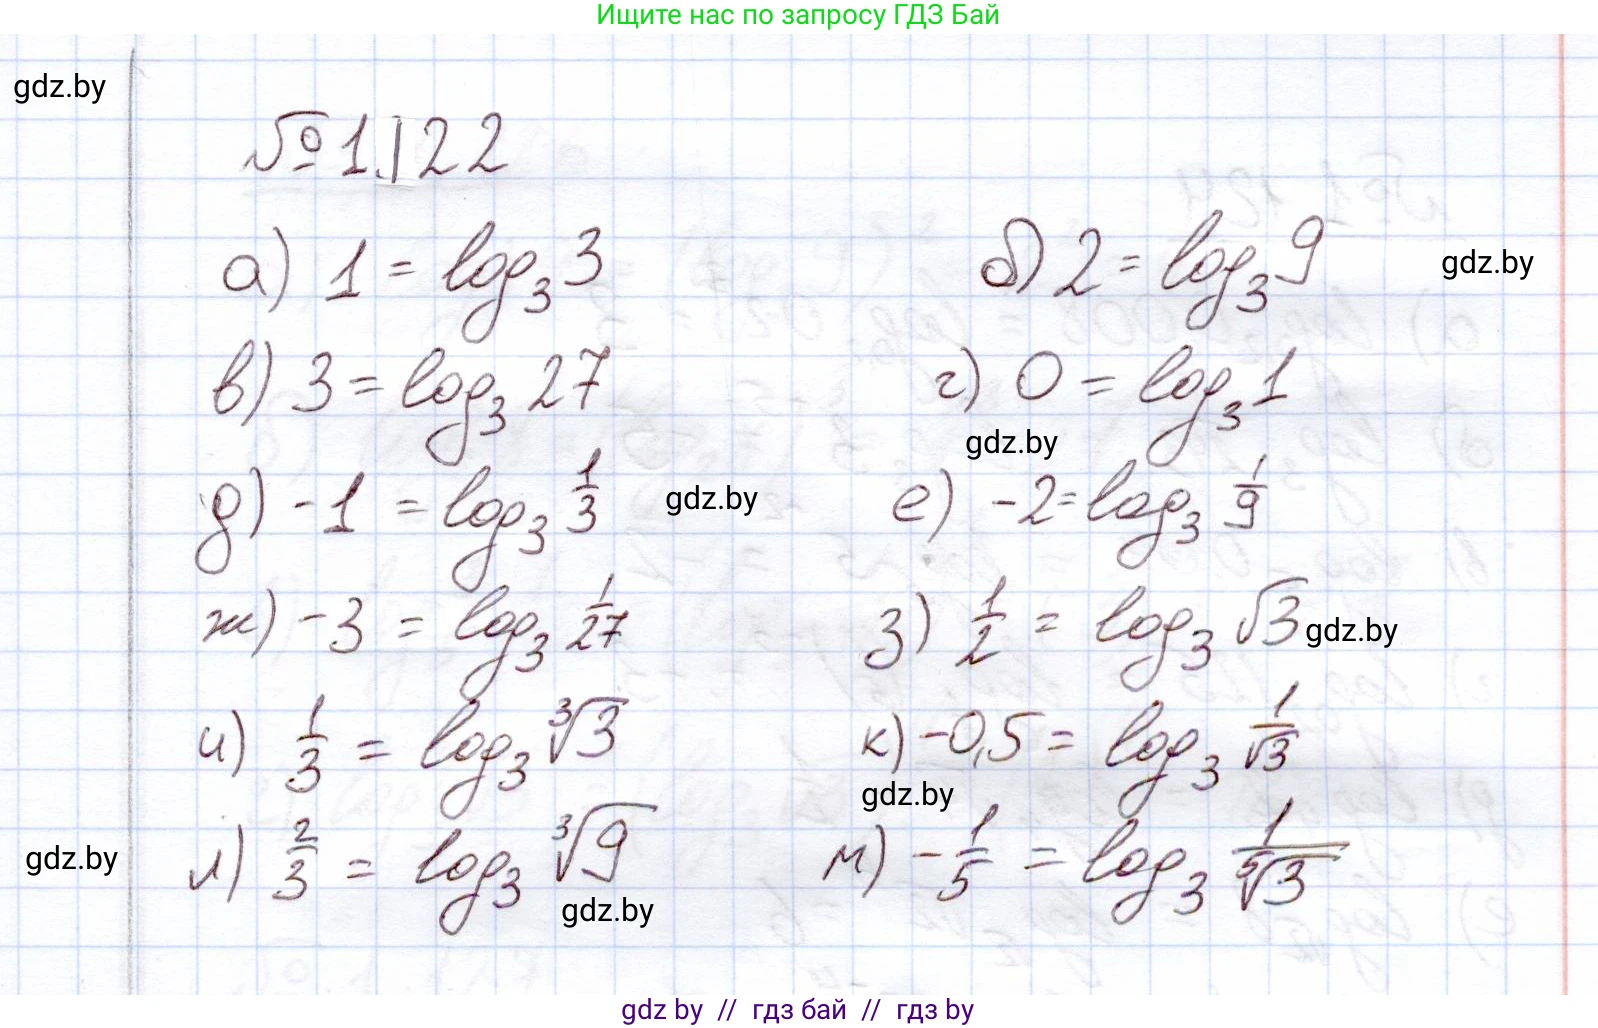 Ищите нас по запросу ГДЗ Бай
gdz.by
№1.122
а) 1 = log₃3 б) 2 = log₃9 gdz.by
в) 3 = log₃27 г) 0 = log₃1
gdz.by
д) -1 = log₃ 1/3 gdz.by е) -2 = log₃ 1/9
ж) -3 = log₃ 1/27 з) 1/2 = log₃ √3 gdz.by
и) 1/3 = log₃ ∛3 к) -0,5 = log₃ 1/√3
gdz.by
gdz.by л) 2/3 = log₃ ∛9 м) -1/5 = log₃ 1/⁵√3
gdz.by
gdz by // гдз бай // гдз by